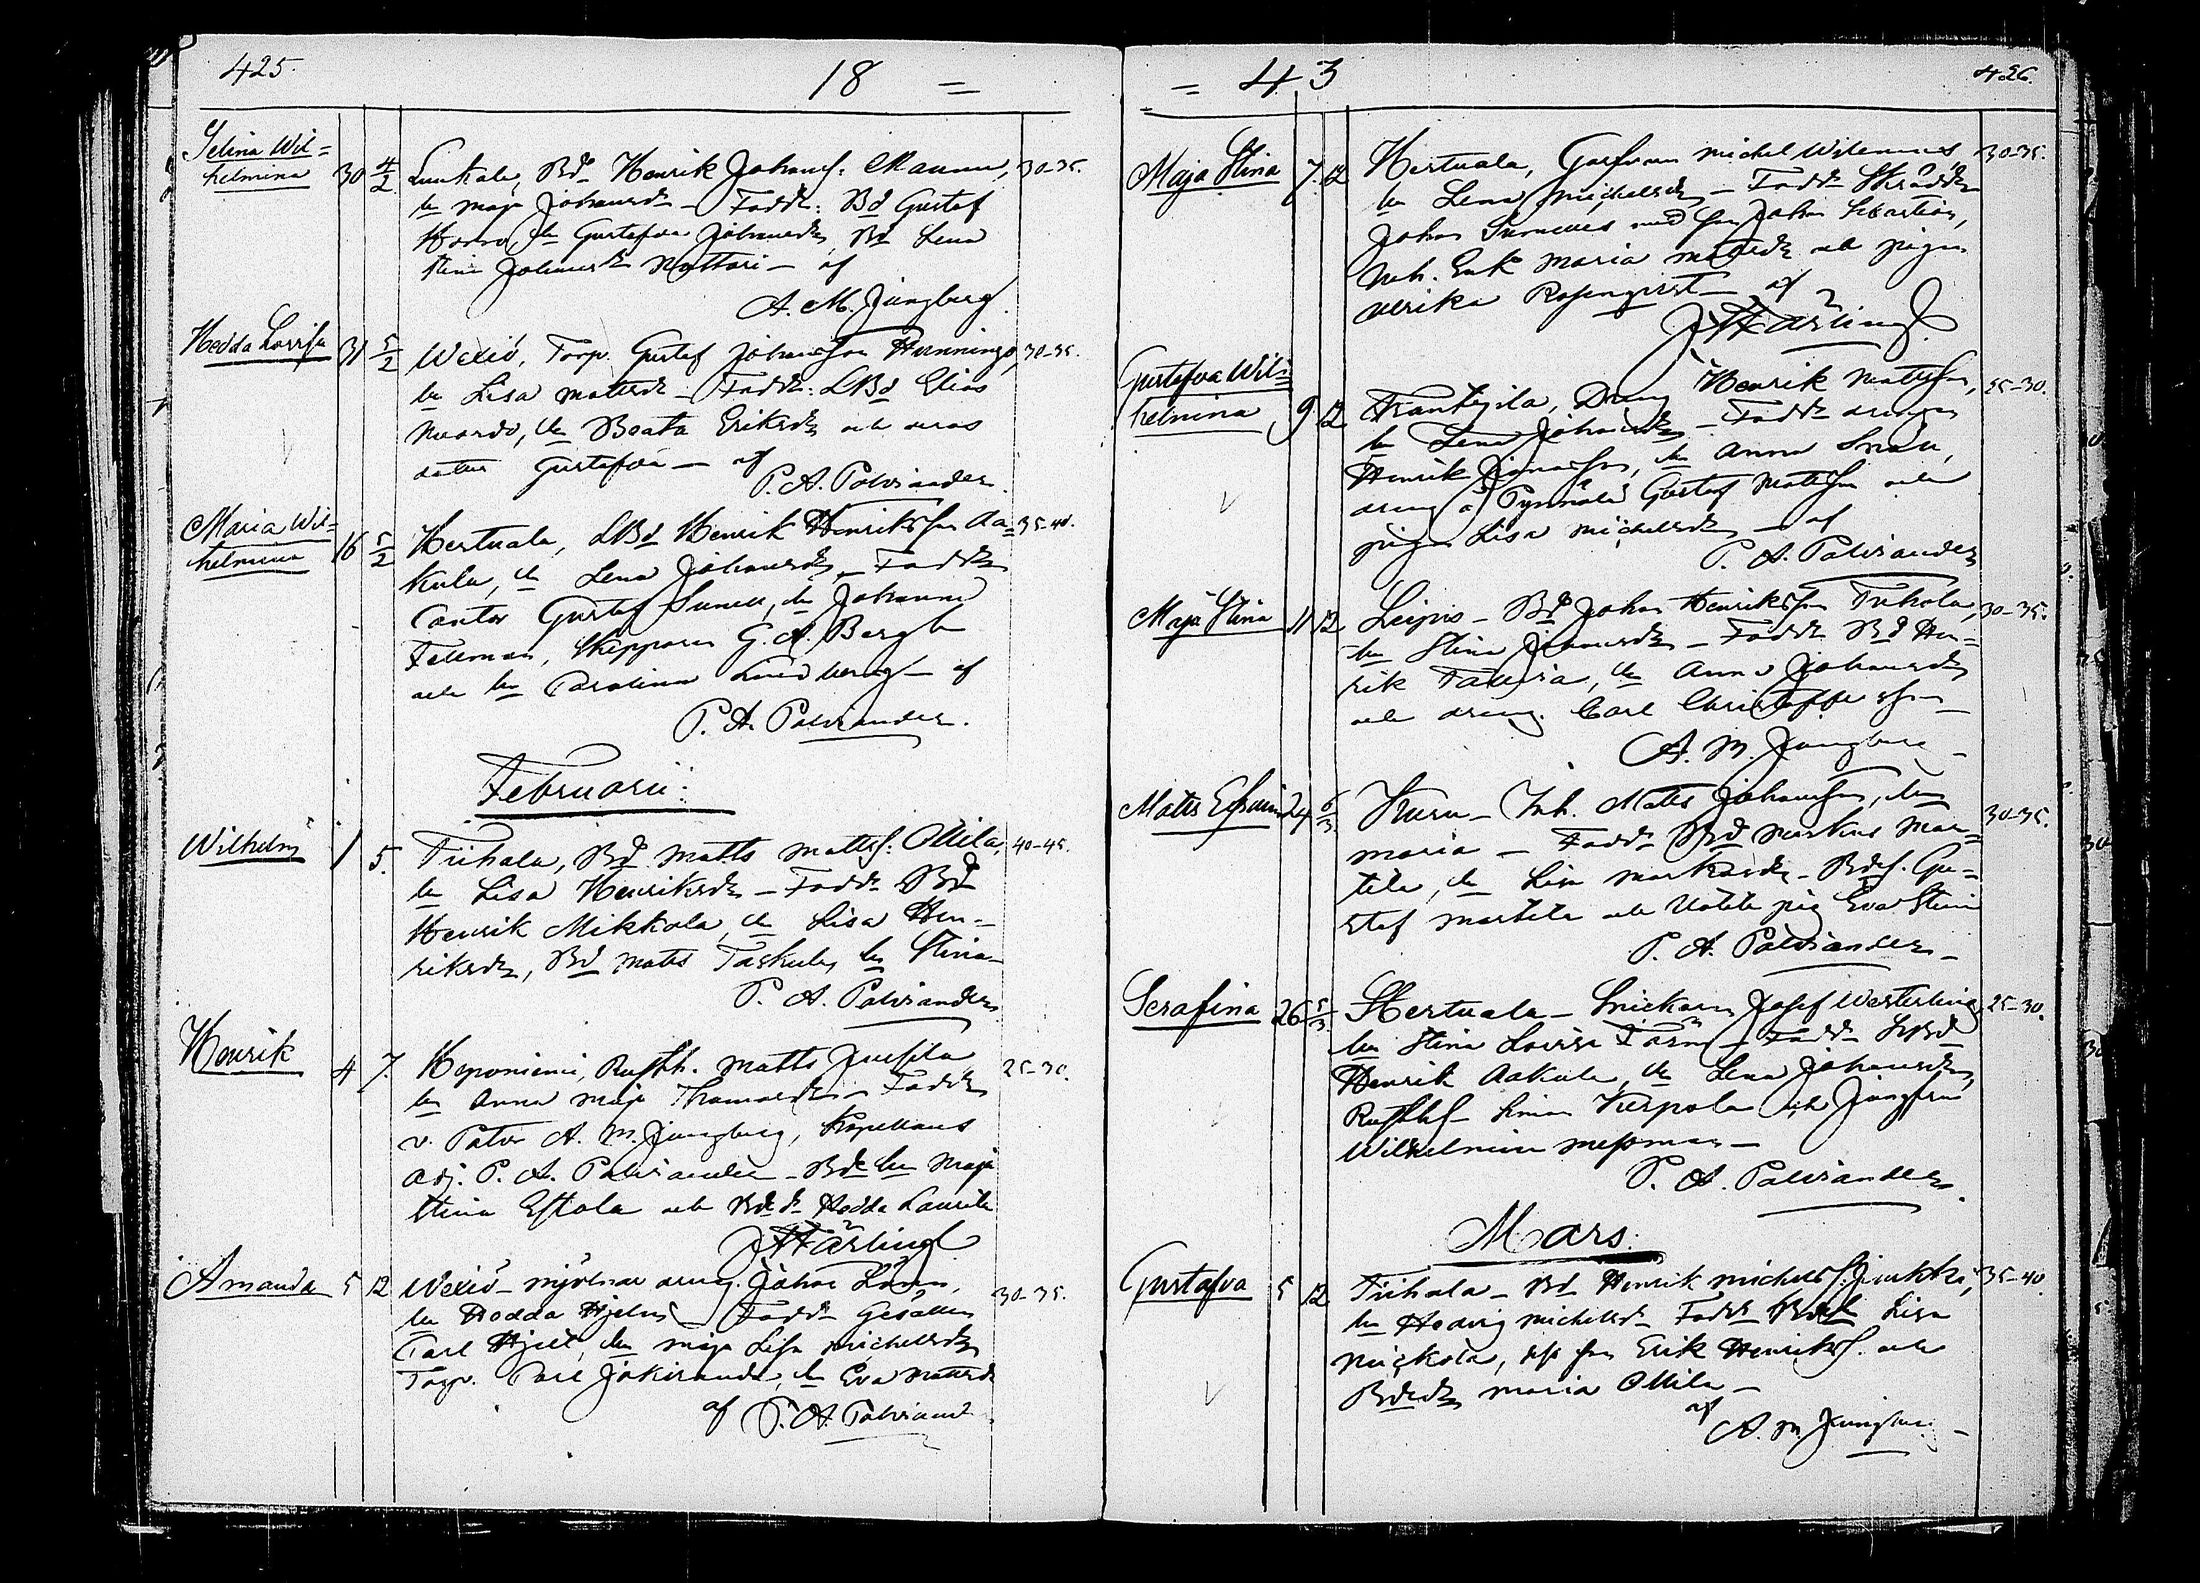 425.
18 =
Selina Wil=
helmina 30 4/2 Lunkala, Bd Henrik Johansf. Mannu, 30-35.
hu Maja Johansdr – Faddr: Bd Gustaf
hu Gustafva Johansdr, Bd Lena
Stina Johansdr Nattari – af
A. M. Jungberg.
Hedda Lovisa 31 5/2 Wexiö, Torp. Gustaf Johansson Hunninge, 30-35.
hu Lisa Mattsdr – Faddr: LBd Elias
hu Beata Eriksdr och deras
dotter Gustafva – af
P. A. Palviander.
Maria Wil=
helmina 16 5/2 Hertuala, LBd Henrik Henriksson Aa= 35-40.
kula, hu Lena Johansdr – Faddr
Cantor Gustaf hu Johanna
Fellman, Skepparen G. A. Bergh
och hu Carolina Lindberg – af
P. A. Palviander.
Februarii:
Wilhelm 1 5. Tuhala, Bd Matts Mattsf. Ollila, 40-45.
hu Lisa Henriksdr – Faddr Bd
Henrik Mikkola, hu Lisa Hen-
riksdr, Bd Matts Taskula, hu Stina –
P. A. Palviander
Henrik 4 7. Keponiemi, Rusth. Matts Juusila 25-30.
hu Anna Maja Thomasdr – Faddr
v. Pator A. M. Jungberg, Kapellans
Adj. P. A. Palviander – Bd hu Maja
Stina Estola och Bd dr Hedda Laurila
J. H. Färling
Amanda 5 12 Wexiö – mjölnar dreng. Johan 30-35.
hu Hedda Hjelm – Faddr Gesällen
Carl Hjelt, hu Maja Lisa Michelsdr
Torp. Carl hu Eva Mattsdr
af P. A. Palviand
= 43
426.
Maja Stina 7. 12 Hertuala, Michel Wilenius 30-35.
hu Lena Michelsdr – Faddr Skräddr
Johan Sirenius med son Johan
Inh. Enk. Maria Mattsdr och pigan
Ulrika Rosenqvist – af
J. H. Färling
Gustafva Wil=
helmina 9 12 Frantzila, Dreng Henrik Mattsson, 25-30.
hu Lena Johansdr – Faddr drengen
Henrik hu Anna
dreng å Pynnälä Gustaf Mattsson och
pigan Lisa Michelsdr – af
P. A. Palviander
Maja Stina 11 12 Leipis – Bd Johan Henriksson Tuhola, 30-35.
hu Stina Johansdr – Faddr Bd Hen-
rik hu Anna Johansdr
och dreng. Carl Christoffersson –
A. M. Jungberg –
Matts Efraim 24 6/3 Kuru – Inh. Matts Johansson, hu 30-35.
Maria – Faddr Bd Markus Mar=
tila, hu Lisa Markusdr – Bdsf. Gu=
staf Martila och pig Eva Stina
P. A. Palviander –
Serafina 26 5/3 Hertuala – Snickaren Josef Westerling 25-30.
hu Stina Lovisa – Faddr LBd
Henrik Aakula, hu Lena Johansdr,
Rusthf. Simon Kurpola och Jungfrun
Wilhelmina Messman –
P. A. Palviander.
Mars.
Gustafva 5 12 Tuhala – Bd Henrik Michelsf. Jurkka, 35-40.
hu Hedvig Michelsdr Faddr Lisa
son Erik Henriksf. och
Bddr Maria Ollila –
af
A. M. Jungberg –